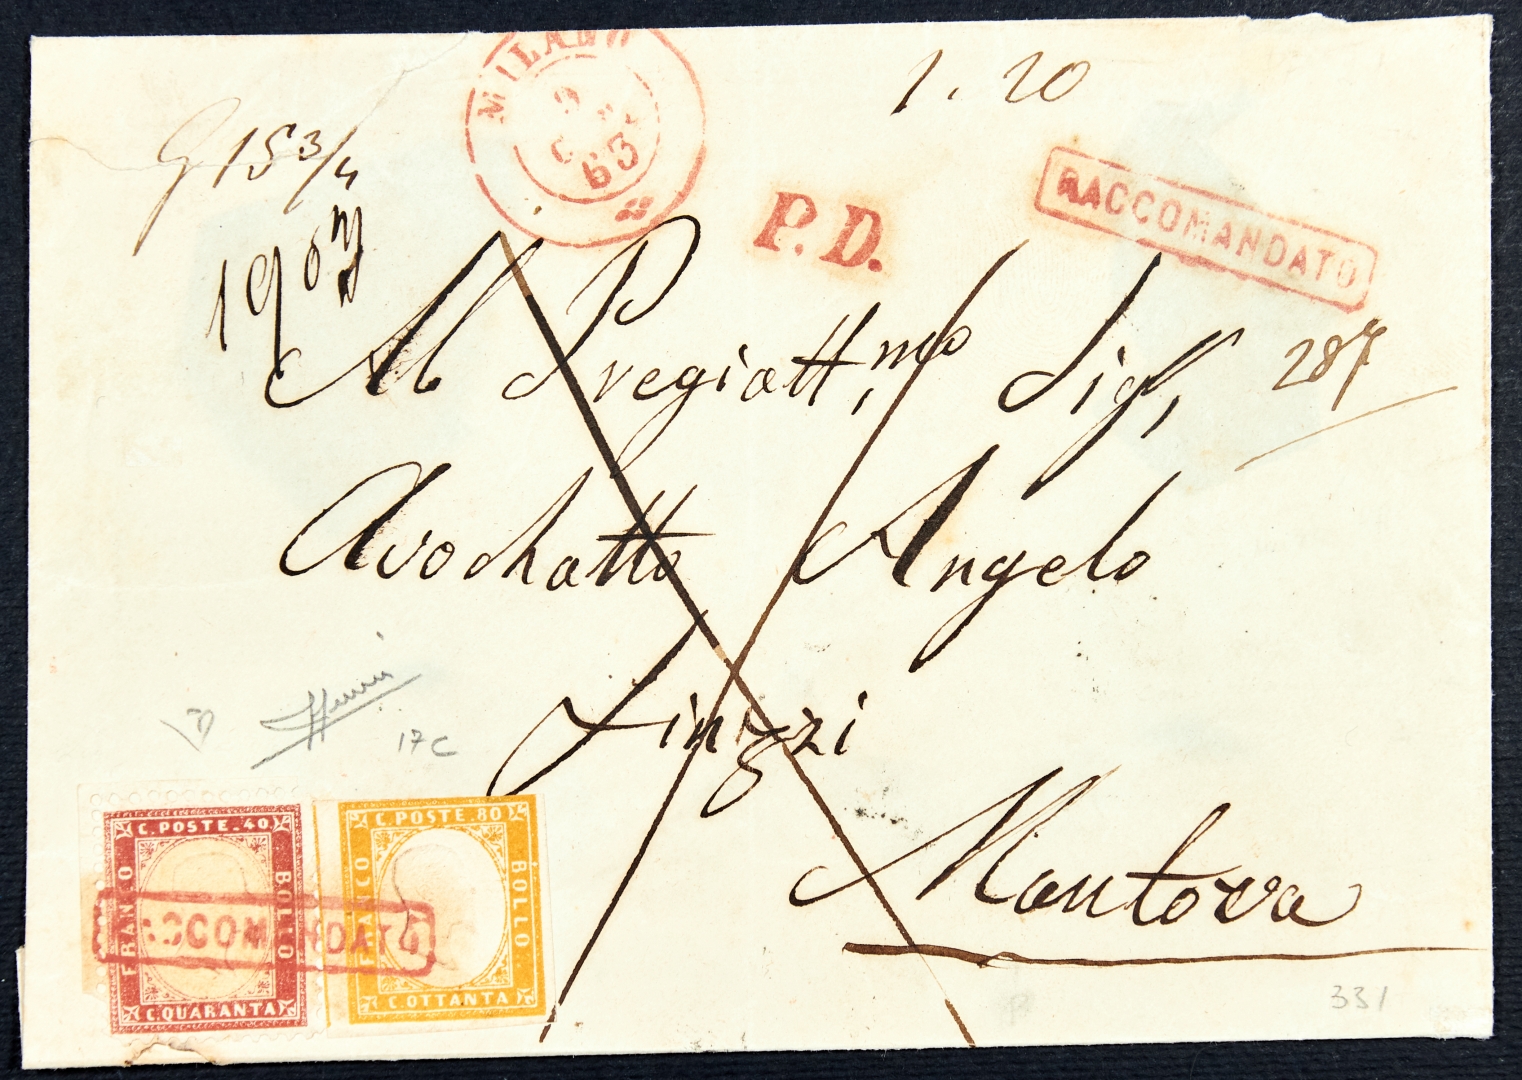 MILANO
63
1.20
G 15 3/4
P.D.
RACCOMANDATO
Al Pregiatt.mo Sigr,
287
Avochatto Angelo
Finizzi
17 C
Mantova
C. POSTE. 40
FRANCO
BOLLO
C. QUARANTA
C. POSTE. 80
FRANCO
BOLLO
C. OTTANTA
RACCOMANDATO
331